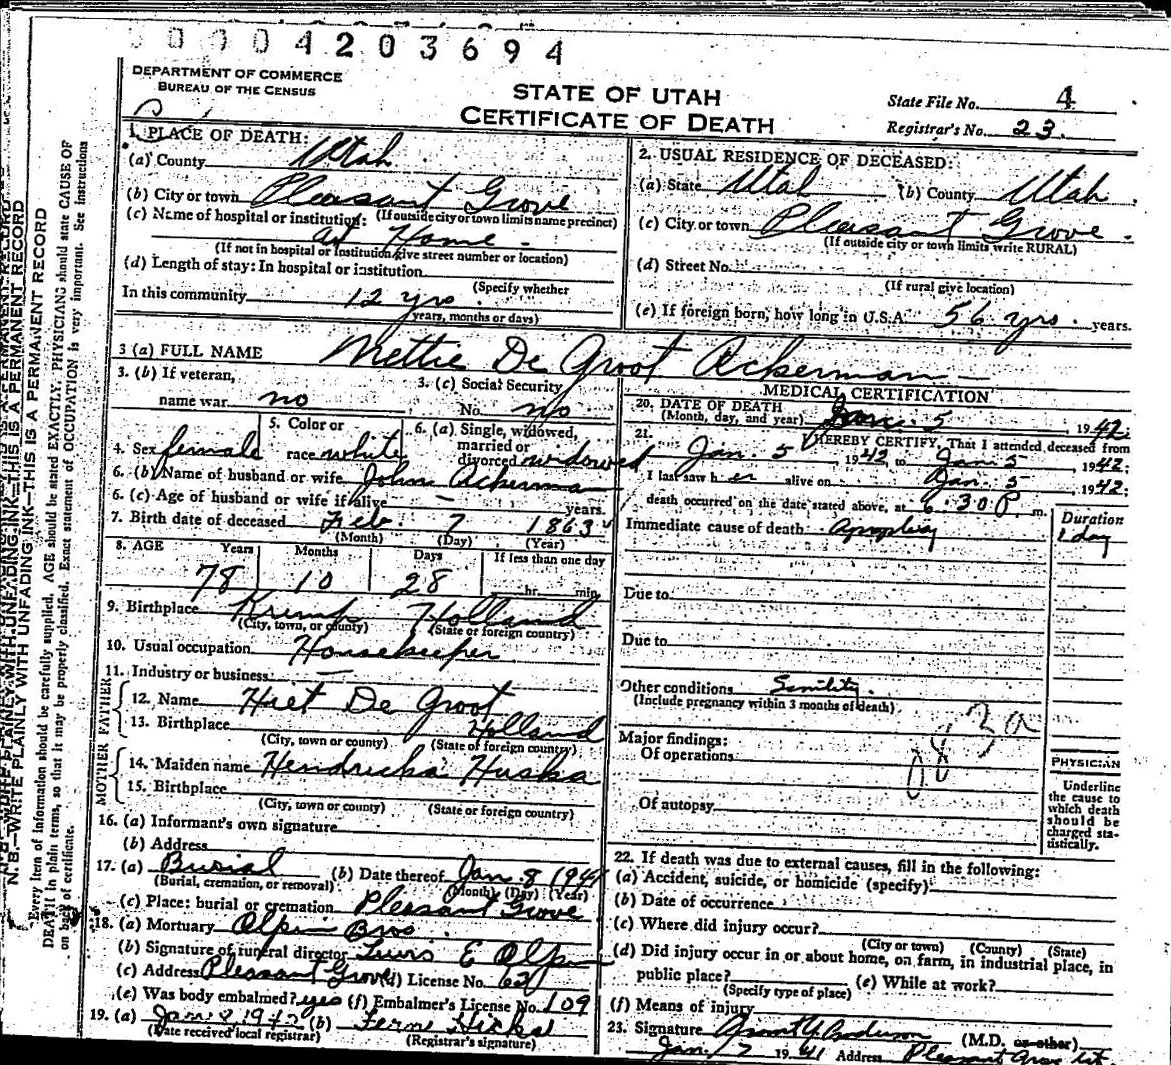 0 0 0 4 2 0 3 6 9 4
DEPARTMENT OF COMMERCE
BUREAU OF THE CENSUS
STATE OF UTAH
CERTIFICATE OF DEATH
State File No. 4
Registrar's No. 23.
1. PLACE OF DEATH:
(a) County Utah
(b) City or town Pleasant Grove
(c) Name of hospital or institution: (If outside city or town limits name precinct)
at Home -
(If not in hospital or institution give street number or location)
(d) Length of stay: In hospital or institution
(Specify whether
In this community 12 yrs.
years, months or days)
2. USUAL RESIDENCE OF DECEASED:
(a) State Utah (b) County Utah.
(c) City or town Pleasant Grove.
(If outside city or town limits write RURAL)
(d) Street No.
(If rural give location)
(e) If foreign born, how long in U.S.A. 56 yrs. years.
3 (a) FULL NAME Mettie De Groot Ackerman
3. (b) If veteran,
name war no
3. (c) Social Security
No. no
4. Sex female
5. Color or
race white
6. (a) Single, widowed,
married or
divorced widowed
6. (b) Name of husband or wife John Ackerman
6. (c) Age of husband or wife if alive -
7. Birth date of deceased Feb. 7 1863
(Month) (Day) (Year)
8. AGE Years Months Days If less than one day
78 10 28 hr. min.
9. Birthplace Holland
(City, town, or county) (State or foreign country)
10. Usual occupation Housekeeper
11. Industry or business
FATHER
12. Name Hiet De Groot
13. Birthplace Holland
(City, town or county) (State of foreign country)
MOTHER
14. Maiden name Hendricka Huska
15. Birthplace
(City, town or county) (State or foreign country)
16. (a) Informant's own signature
(b) Address
17. (a) Burial (b) Date thereof Jan. 8 1941
(Burial, cremation, or removal) (Month) (Day) (Year)
(c) Place: burial or cremation Pleasant Grove
18. (a) Mortuary Olpin Bros.
(b) Signature of funeral director Lewis E Olpin
(c) Address Pleasant Grove (d) License No. 62
(e) Was body embalmed? yes (f) Embalmer's License No. 109
19. (a) Jan 8 1942 (b) Fern Hicks
(Date received local registrar) (Registrar's signature)
MEDICAL CERTIFICATION
20. DATE OF DEATH
(Month, day, and year) Jan. 5 1942;
21. I HEREBY CERTIFY, That I attended deceased from
Jan. 5 1942, to Jan 5, 1942;
I last saw her alive on Jan. 5, 1942;
death occurred on the date stated above, at 6:30 P. m.
Immediate cause of death Apoplexy
Duration
1 day
Due to
Due to
Other conditions Senility.
(Include pregnancy within 3 months of death)
083a
Major findings:
Of operations
Of autopsy
PHYSICIAN
Underline
the cause to
which death
should be
charged sta-
tistically.
22. If death was due to external causes, fill in the following:
(a) Accident, suicide, or homicide (specify)
(b) Date of occurrence
(c) Where did injury occur?
(City or town) (County) (State)
(d) Did injury occur in or about home, on farm, in industrial place, in
public place? (e) While at work?
(Specify type of place)
(f) Means of injury
23. Signature Grant Y. Anderson (M.D. or other)
Jan. 7 1941 Address Pleasant Grove Ut.
N. B.—WRITE PLAINLY WITH UNFADING INK—THIS IS A PERMANENT RECORD
Every item of information should be carefully supplied. AGE should be stated EXACTLY. PHYSICIANS should state CAUSE OF
DEATH in plain terms, so that it may be properly classified. Exact statement of OCCUPATION is very important. See instructions
on back of certificate.